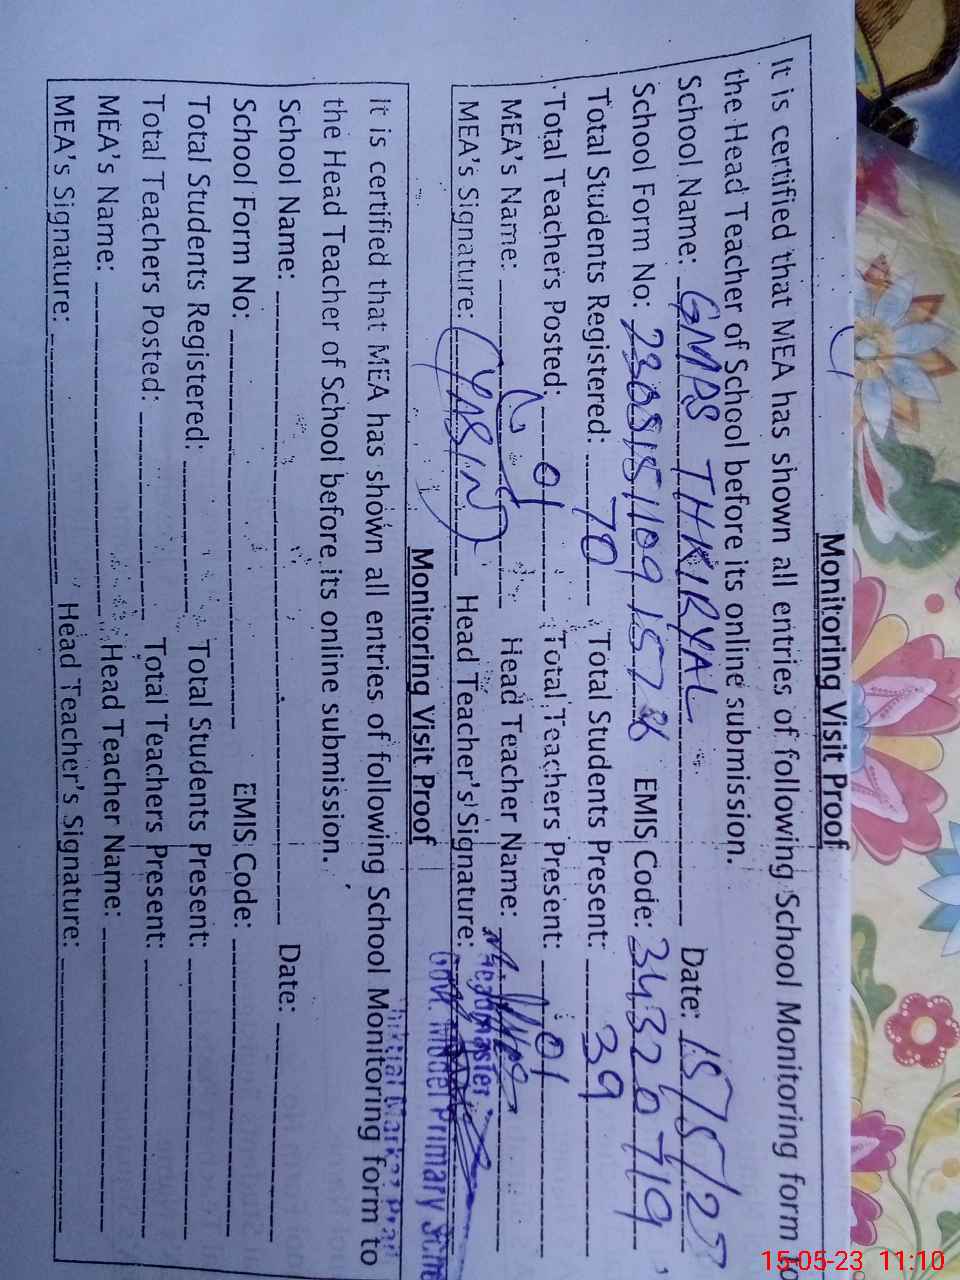 Monitoring Visit Proof
It is certified that MEA has shown all entries of following School Monitoring form to
the Head Teacher of School before its online submission.
School Name: GMPS THKIRYAL Date: 15/5/23
School Form No: EMIS Code: 34320719
Total Students Registered: 70 Total Students Present: 39
Total Teachers Posted: 01 Total Teachers Present: 01
MEA's Name: Head Teacher Name:
MEA's Signature: (YASIN) Head Teacher's Signature:
Headmaster
Govt. Model Primary
Monitoring Visit Proof
It is certified that MEA has shown all entries of following School Monitoring form to
the Head Teacher of School before its online submission.
School Name: Date:
School Form No: EMIS Code:
Total Students Registered: Total Students Present:
Total Teachers Posted: Total Teachers Present:
MEA's Name: Head Teacher Name:
MEA's Signature: Head Teacher's Signature:
15-05-23 11:10